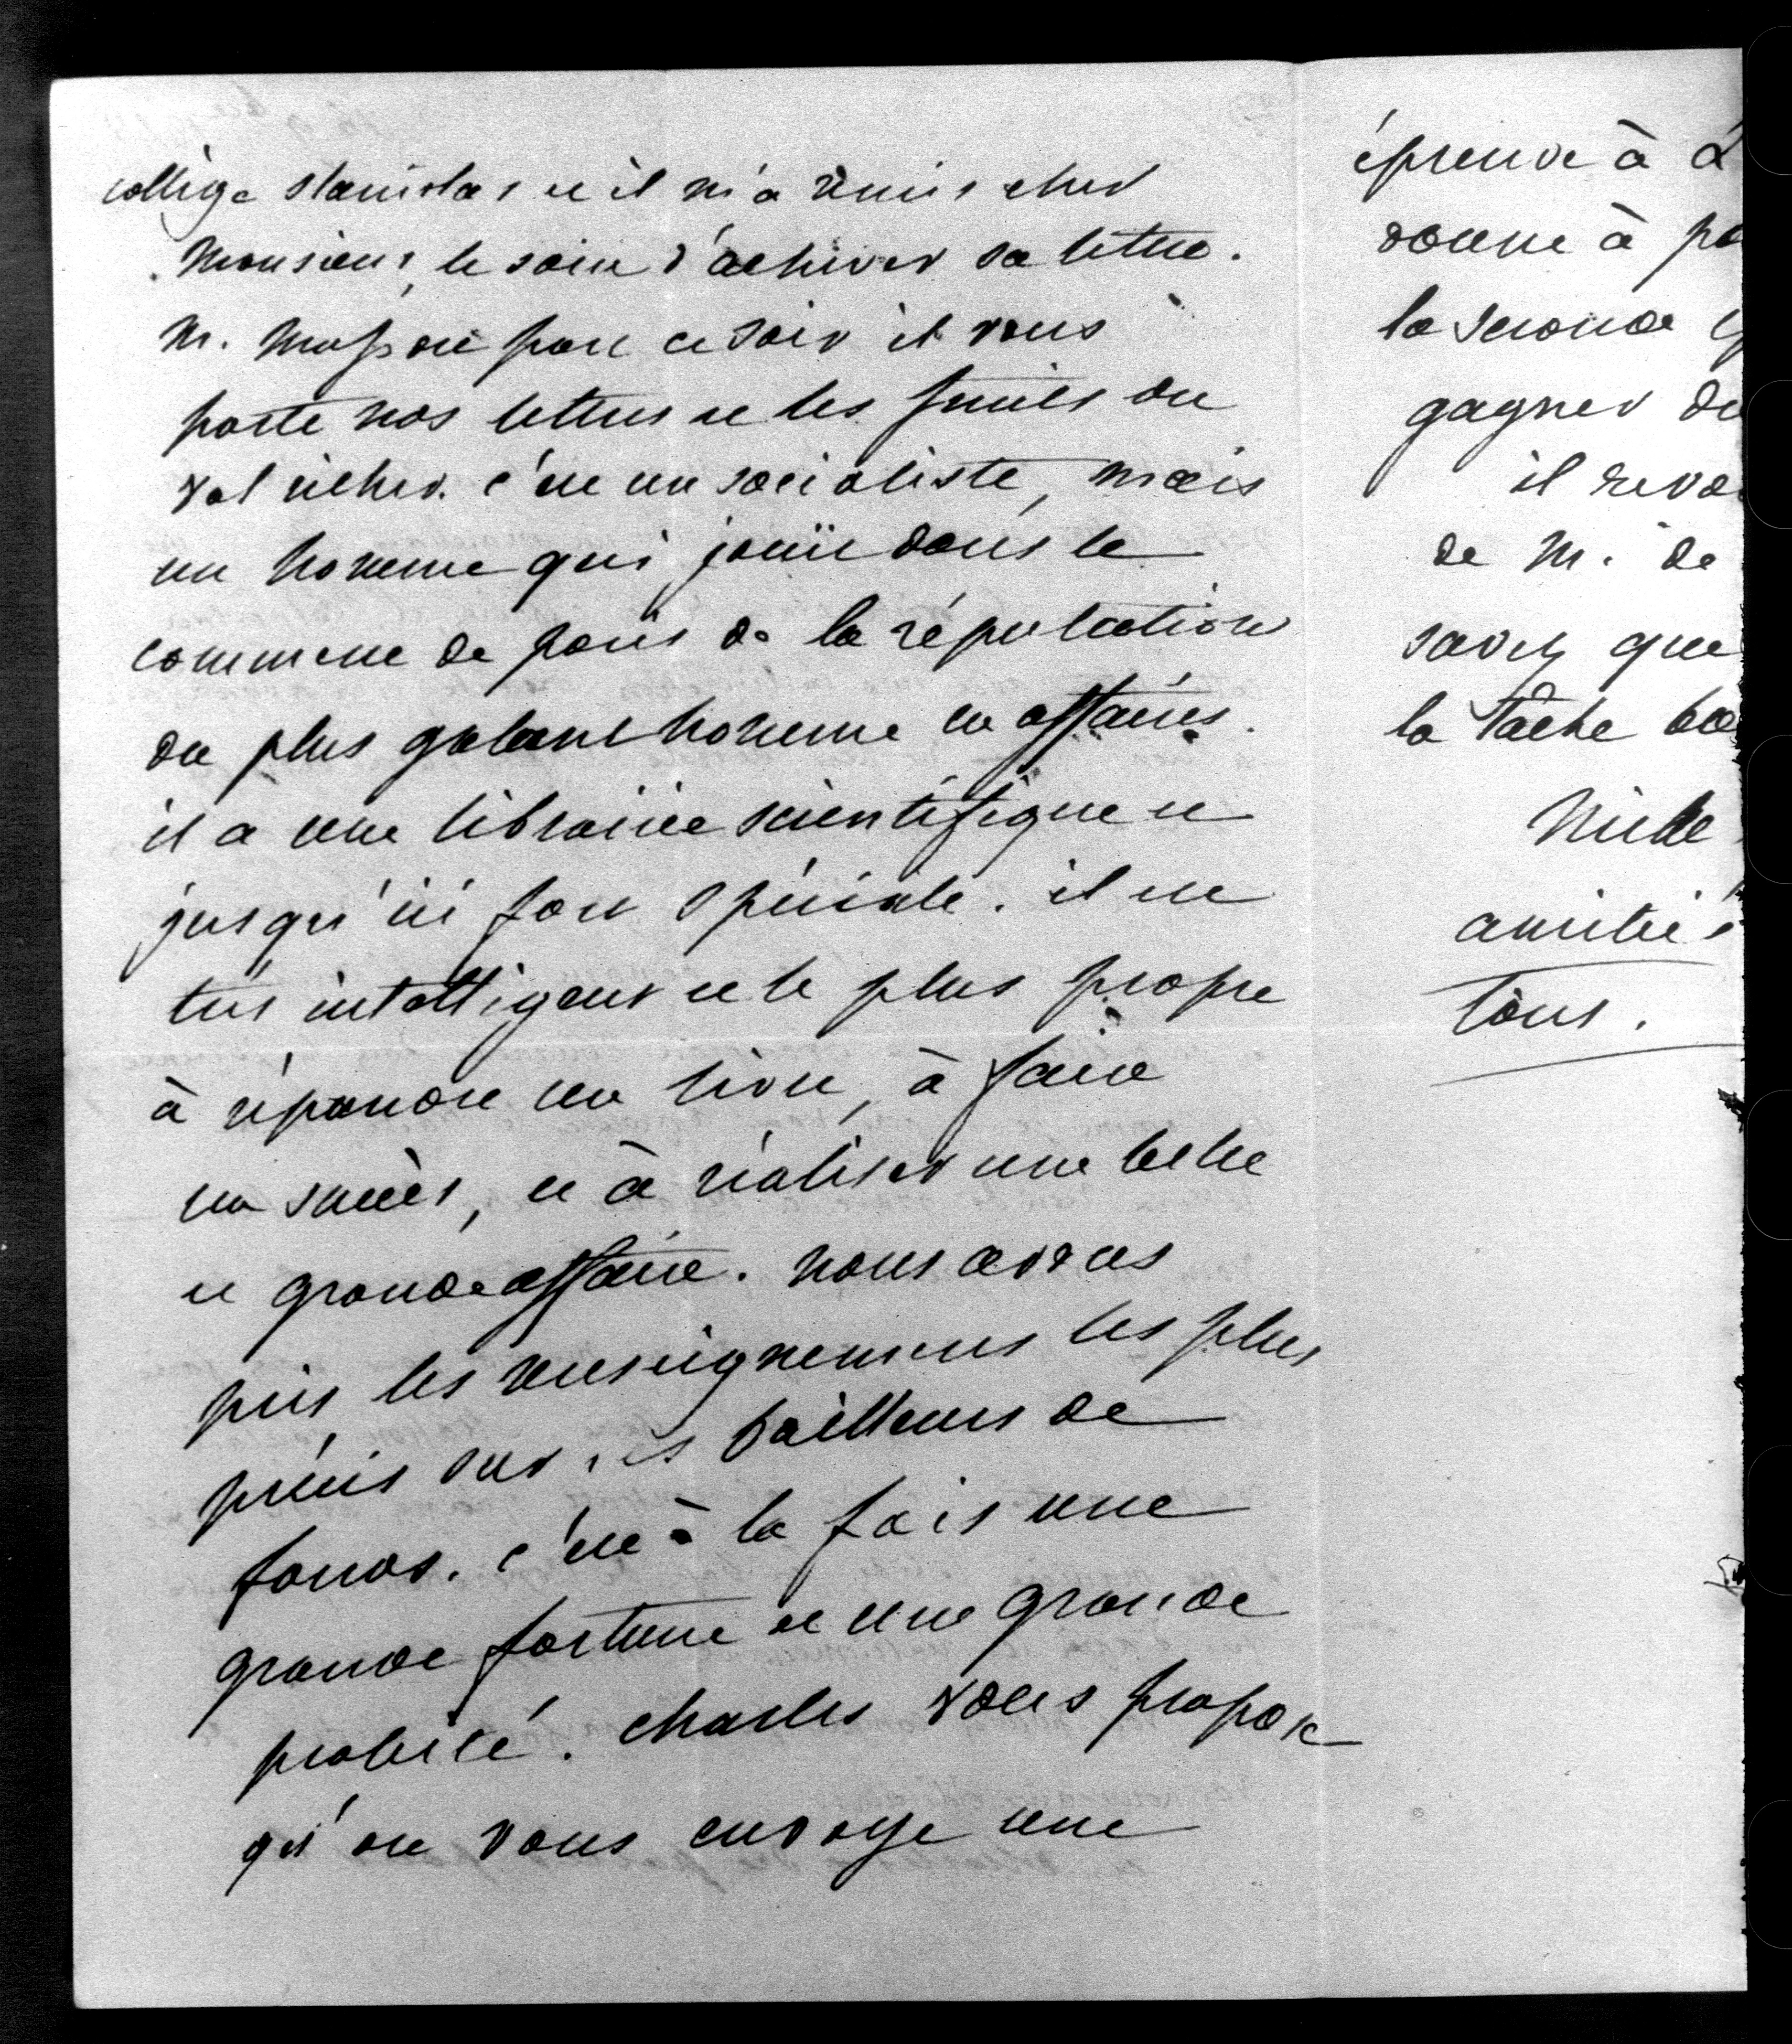 collège stanislas et il m'a remis cher
monsieur, le soin d'achever sa lettre.
M. part ce soir il vous
porte nos lettres et les fusils du
val richer. c'est un socialiste, mais
un homme qui jouit dans le
commerce de paris de la réputation
du plus galant homme en affaires.
il a une librairie scientifique et
jusqu'ici fort spéciale. il est
très intelligent et le plus propre
à répandre un livre, à faire
un succès, et à réaliser une belle
et grande affaire. nous avons
pris les renseignemens les plus
précis sur ses bailleurs de
fonds. c'est à la fois une
grande fortune et une grande
probité. charles vous propose
qu'on vous envoye une
épreuve à
donne à
la seconde
gagner du
il
de M. de
savez que
la tache
mille
amitiés
tous.